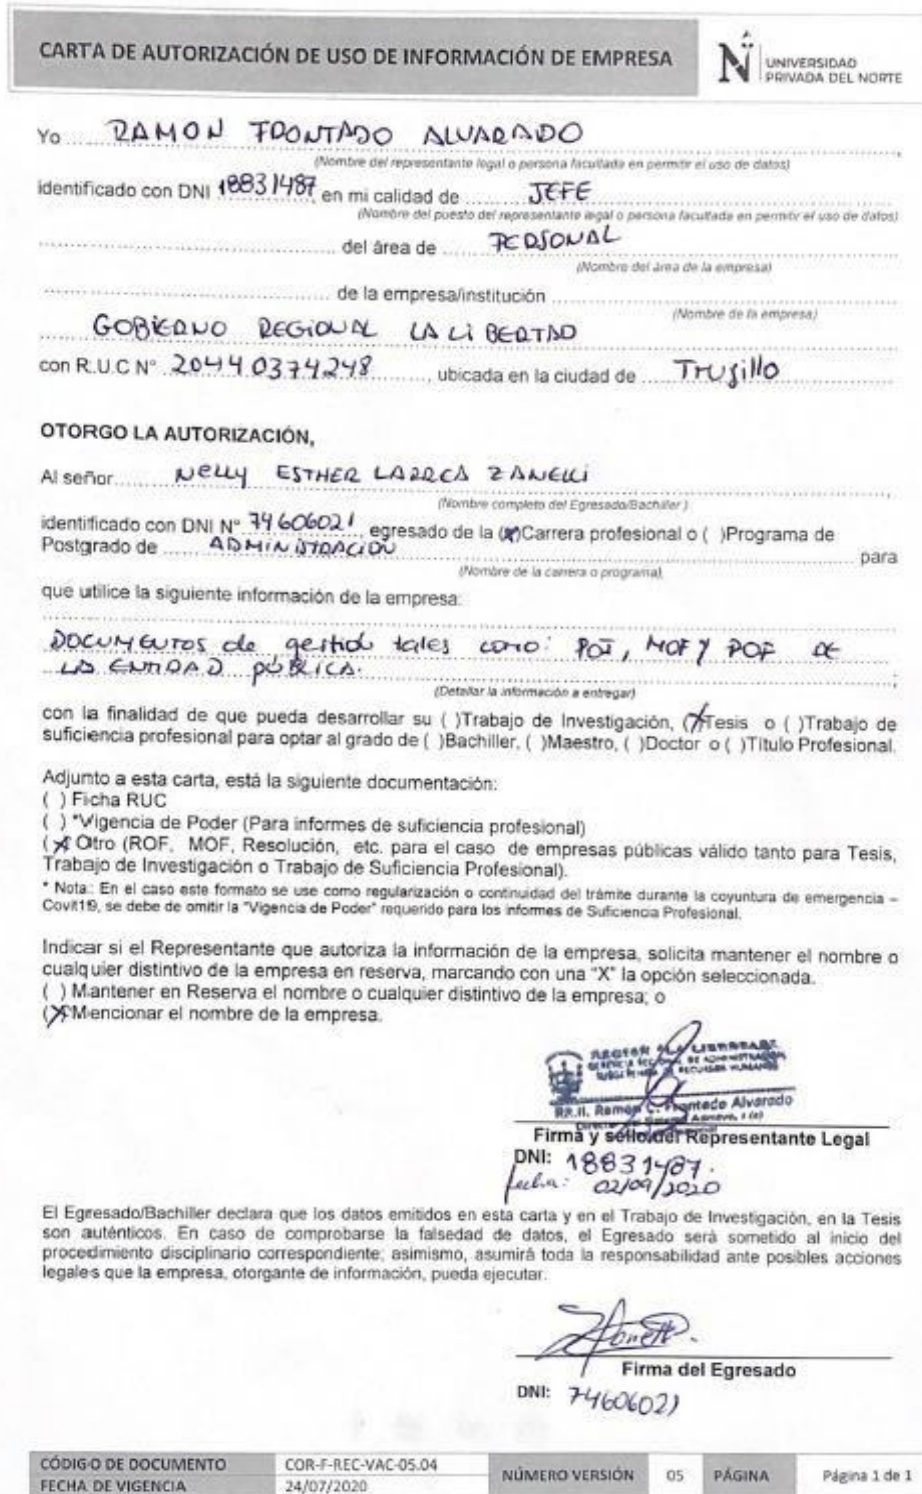 CARTA DE AUTORIZACIÓN DE USO DE INFORMACIÓN DE EMPRESA
UNIVERSIDAD
PRIVADA DEL NORTE
Yo RAMON FRONTADO ALVARADO,
(Nombre del representante legal o persona facultada en permitir el uso de datos)
identificado con DNI 18831487, en mi calidad de JEFE
(Nombre del puesto del representante legal o persona facultada en permitir el uso de datos)
del área de PERSONAL
(Nombre del área de la empresa)
de la empresa/institución
(Nombre de la empresa)
GOBIERNO REGIONAL LA LIBERTAD
con R.U.C N° 20440374248, ubicada en la ciudad de Trujillo
OTORGO LA AUTORIZACIÓN,
Al señor Nelly ESTHER LARREA ZANELLI
(Nombre completo del Egresado/Bachiller)
identificado con DNI N° 74606021, egresado de la (X)Carrera profesional o ( )Programa de
Postgrado de ADMINISTRACION para
(Nombre de la carrera o programa)
que utilice la siguiente información de la empresa:
DOCUMENTOS de gestión tales como: POI, MOF Y ROF DE
LA ENTIDAD PÚBLICA.;
(Detallar la información a entregar)
con la finalidad de que pueda desarrollar su ( )Trabajo de Investigación, (X)Tesis o ( )Trabajo de
suficiencia profesional para optar al grado de ( )Bachiller, ( )Maestro, ( )Doctor o ( )Título Profesional.
Adjunto a esta carta, está la siguiente documentación:
( ) Ficha RUC
( ) *Vigencia de Poder (Para informes de suficiencia profesional)
(X) Otro (ROF, MOF, Resolución, etc. para el caso de empresas públicas válido tanto para Tesis,
Trabajo de Investigación o Trabajo de Suficiencia Profesional).
* Nota.: En el caso este formato se use como regularización o continuidad del trámite durante la coyuntura de emergencia –
Covit19, se debe de omitir la "Vigencia de Poder" requerido para los informes de Suficiencia Profesional.
Indicar si el Representante que autoriza la información de la empresa, solicita mantener el nombre o
cualquier distintivo de la empresa en reserva, marcando con una "X" la opción seleccionada.
( ) Mantener en Reserva el nombre o cualquier distintivo de la empresa; o
(X) Mencionar el nombre de la empresa.
RECURSOS HUMANOS
Frontado Alvarado
Firma y sello del Representante Legal
DNI: 18831487.
fecha: 02/09/2020
El Egresado/Bachiller declara que los datos emitidos en esta carta y en el Trabajo de Investigación, en la Tesis
son auténticos. En caso de comprobarse la falsedad de datos, el Egresado será sometido al inicio del
procedimiento disciplinario correspondiente; asimismo, asumirá toda la responsabilidad ante posibles acciones
legales que la empresa, otorgante de información, pueda ejecutar.
Firma del Egresado
DNI: 74606021
CÓDIGO DE DOCUMENTO COR-F-REC-VAC-05.04 NÚMERO VERSIÓN 05 PÁGINA Página 1 de 1
FECHA DE VIGENCIA 24/07/2020